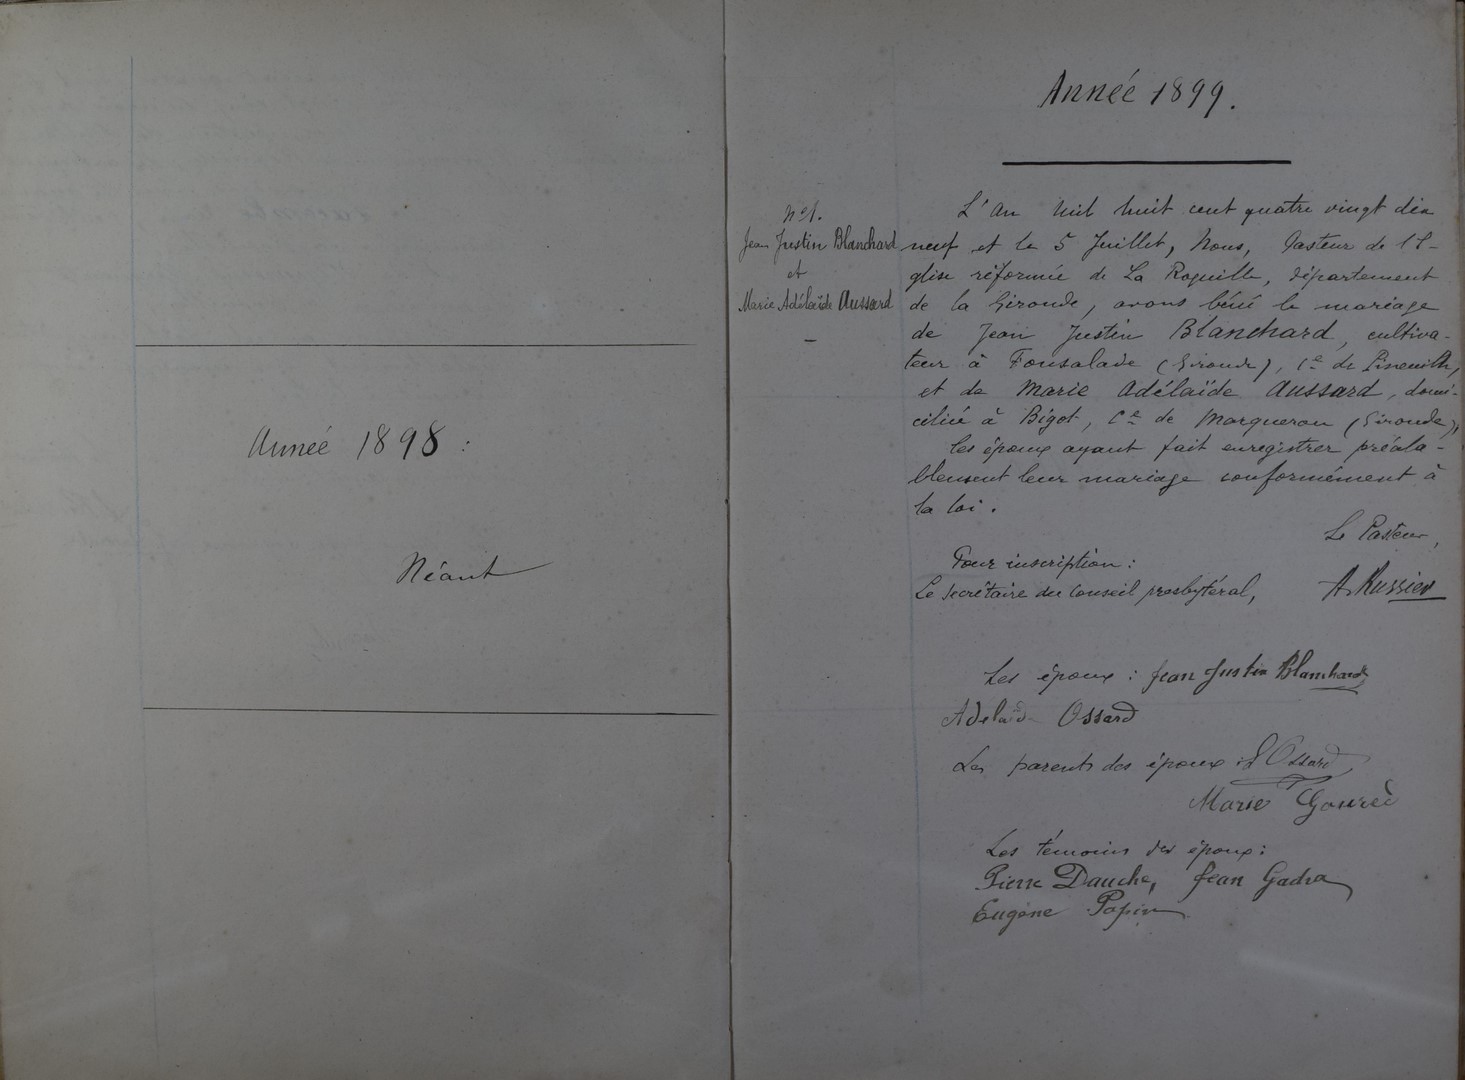 Année 1898 :
Néant
Année 1899.
N° 1.
Jean Justin Blanchard
et
Marie Adélaïde Aussard
L'An mil huit cent quatre vingt dix
neuf et le 5 Juillet, Nous, Pasteur de l'E-
glise réformée de La Roquille, département
de la Gironde, avons béni le mariage
de Jean Justin Blanchard, cultiva-
teur à Fonsalade (Gironde), Cne de Pineuilh,
et de Marie Adélaïde Aussard, domi-
ciliée à Bigot, Cne de Margueron (Gironde),
les époux ayant fait enregistrer préala-
blement leur mariage conformément à
la loi.
Le Pasteur,
Pour inscription :
Le Secrétaire du Conseil presbytéral,
Les époux : Jean Justin Blanchard
Adelaïde Ossard
Les parents des époux : Ossard
Marie
Les témoins des époux :
Pierre Dauche, Jean
Eugène Papin